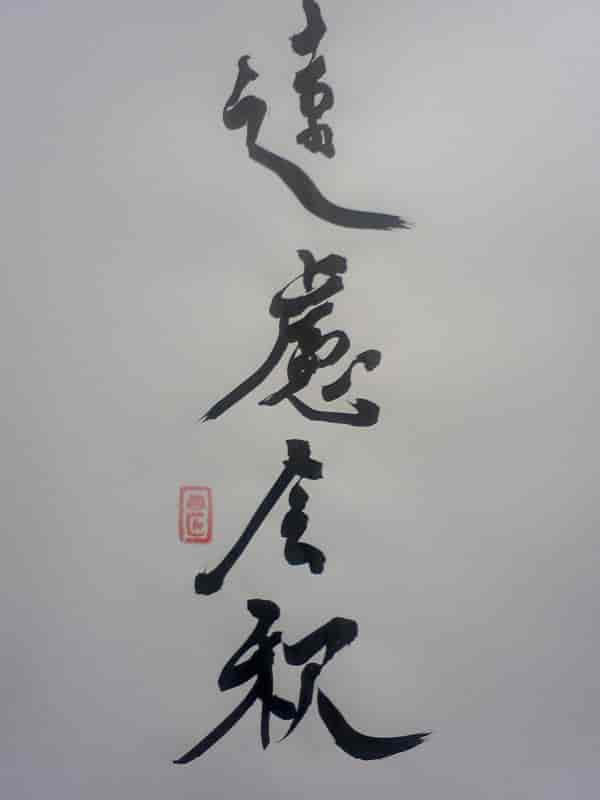 遠慮会釈